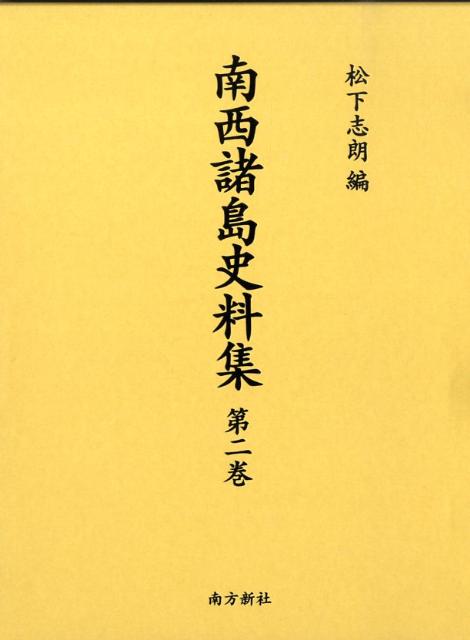 松下志朗編
南西諸島史料集 第二巻
南方新社